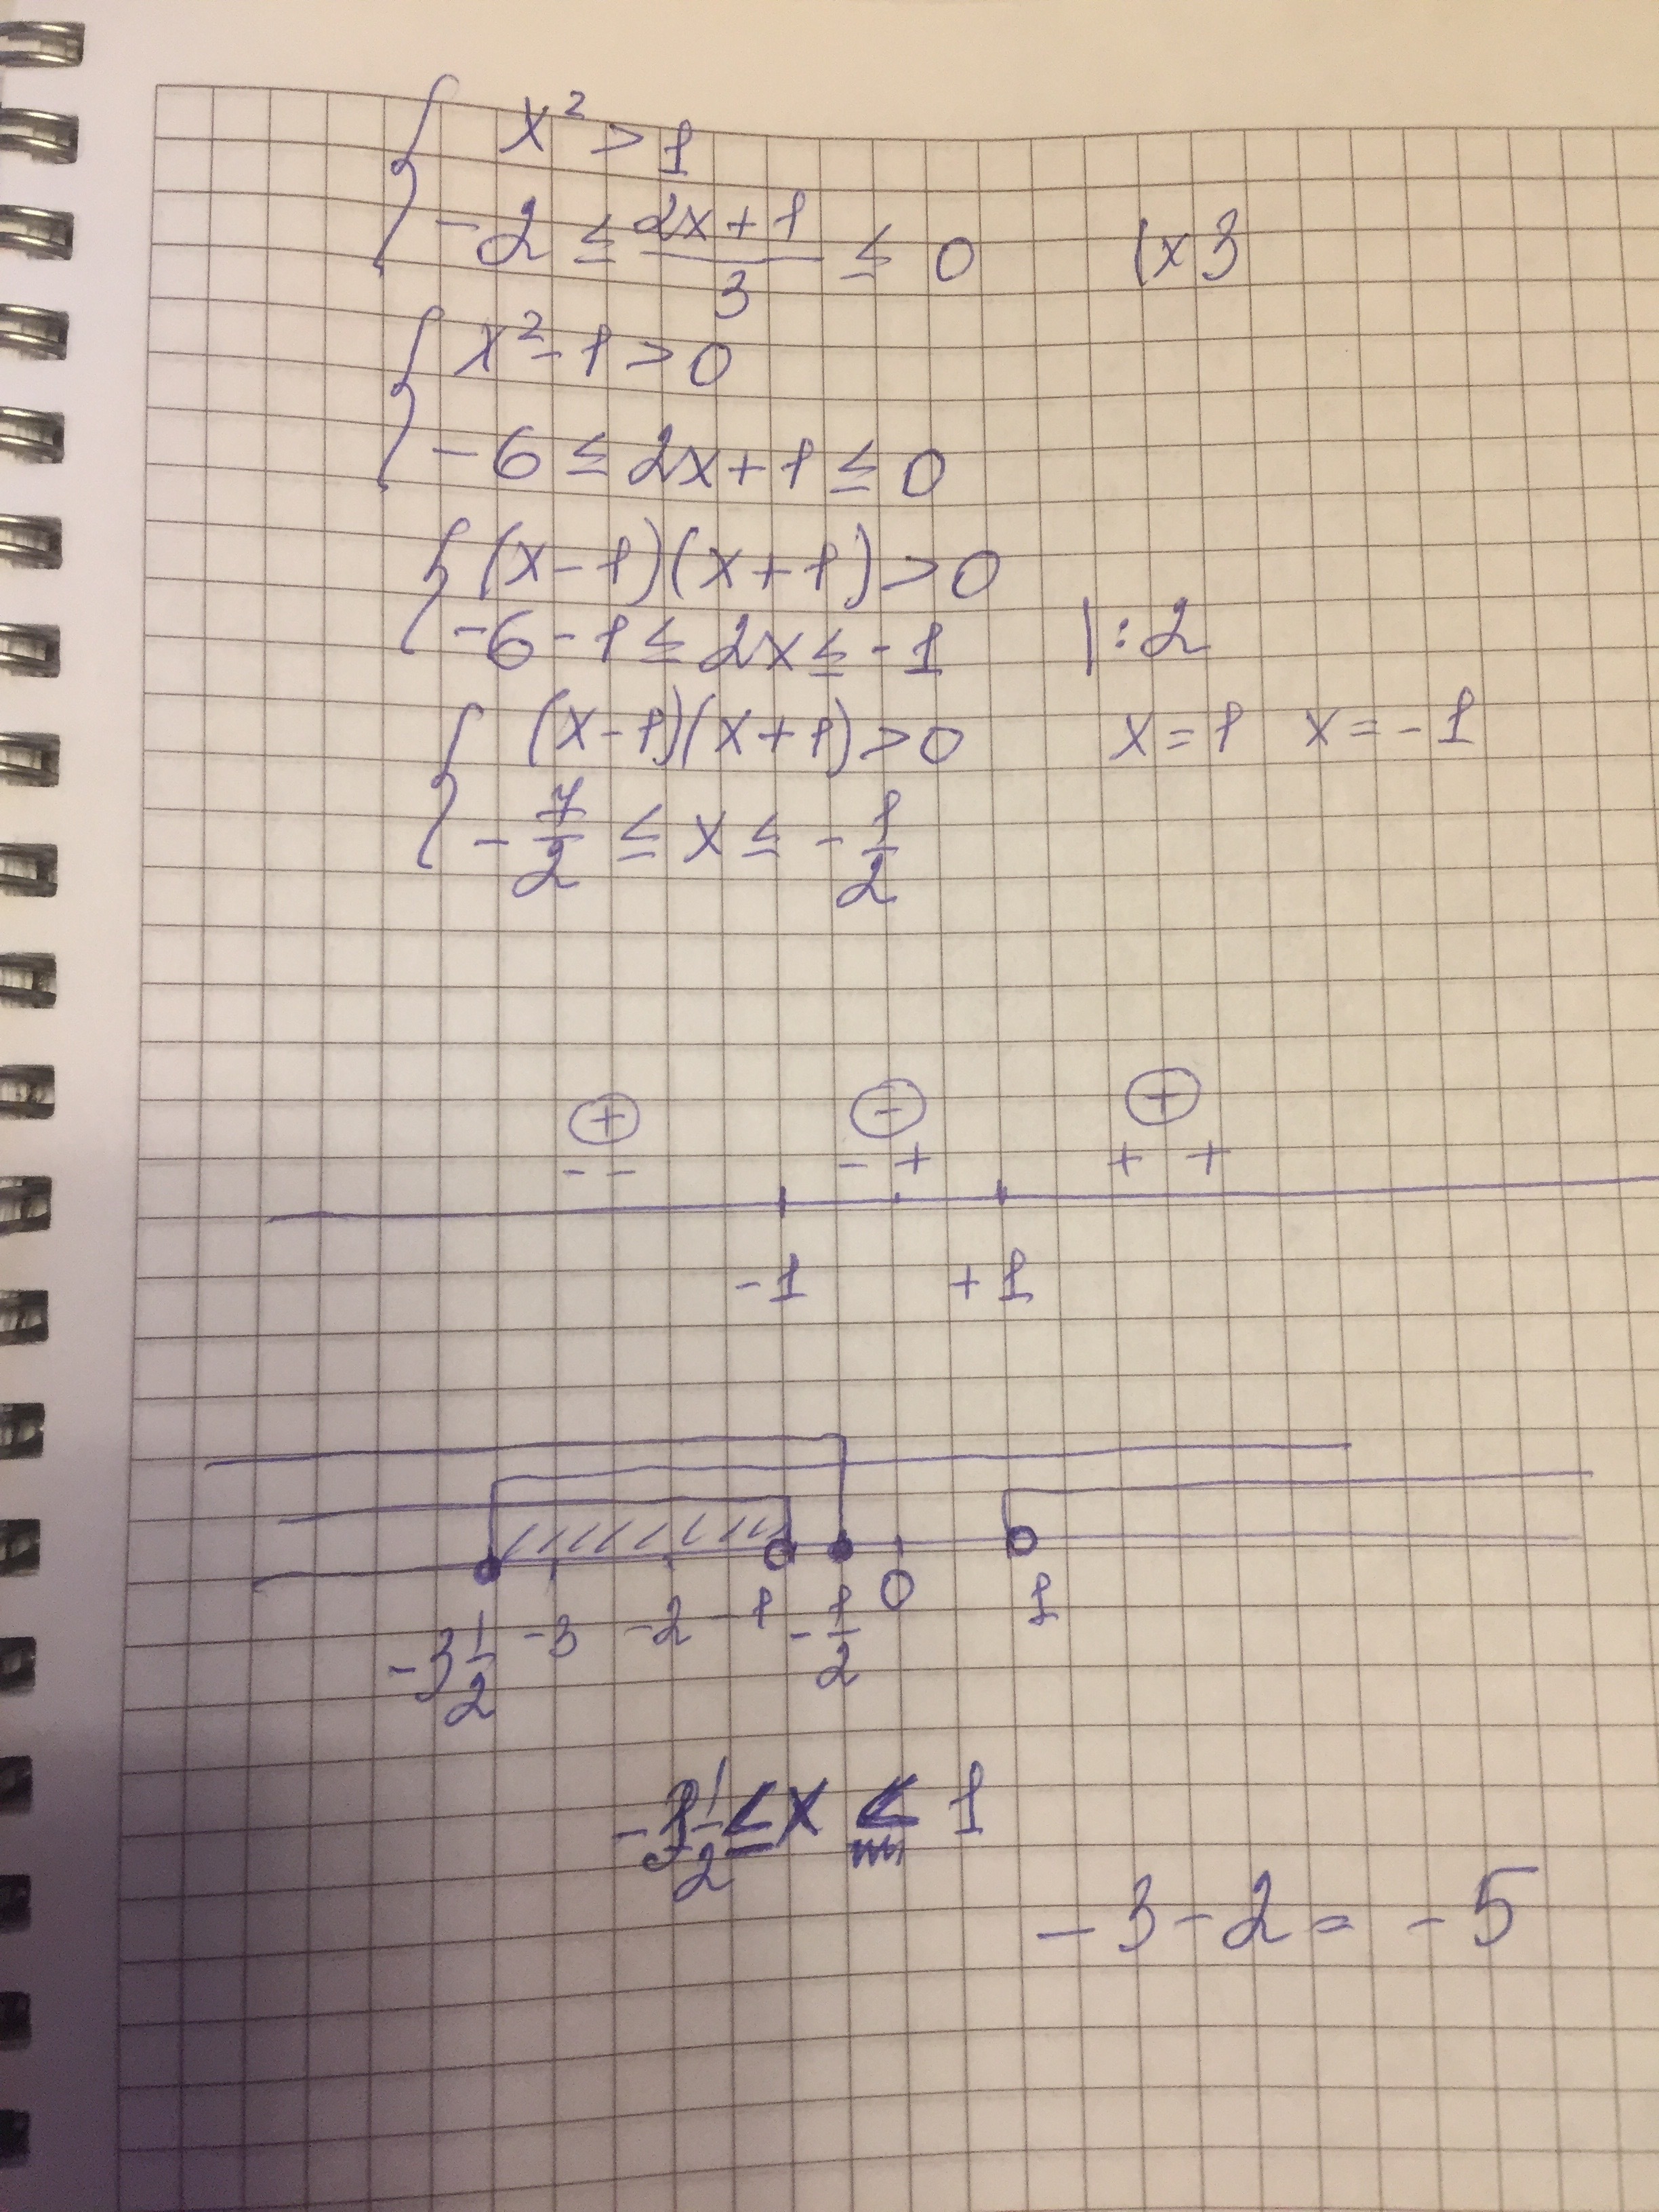 x² > 1
-2 ≤ (2x+1)/3 ≤ 0 |x3
x²-1 > 0
-6 ≤ 2x+1 ≤ 0
(x-1)(x+1) > 0
-6-1 ≤ 2x ≤ -1 |:2
(x-1)(x+1) > 0 x=1 x=-1
-7/2 ≤ x ≤ -1/2
+ - +
- - - + + +
-1 +1
-3 1/2 -3 -2 -1 -1/2 0 1
-3 1/2 ≤ x ≤ 1
-3-2 = -5